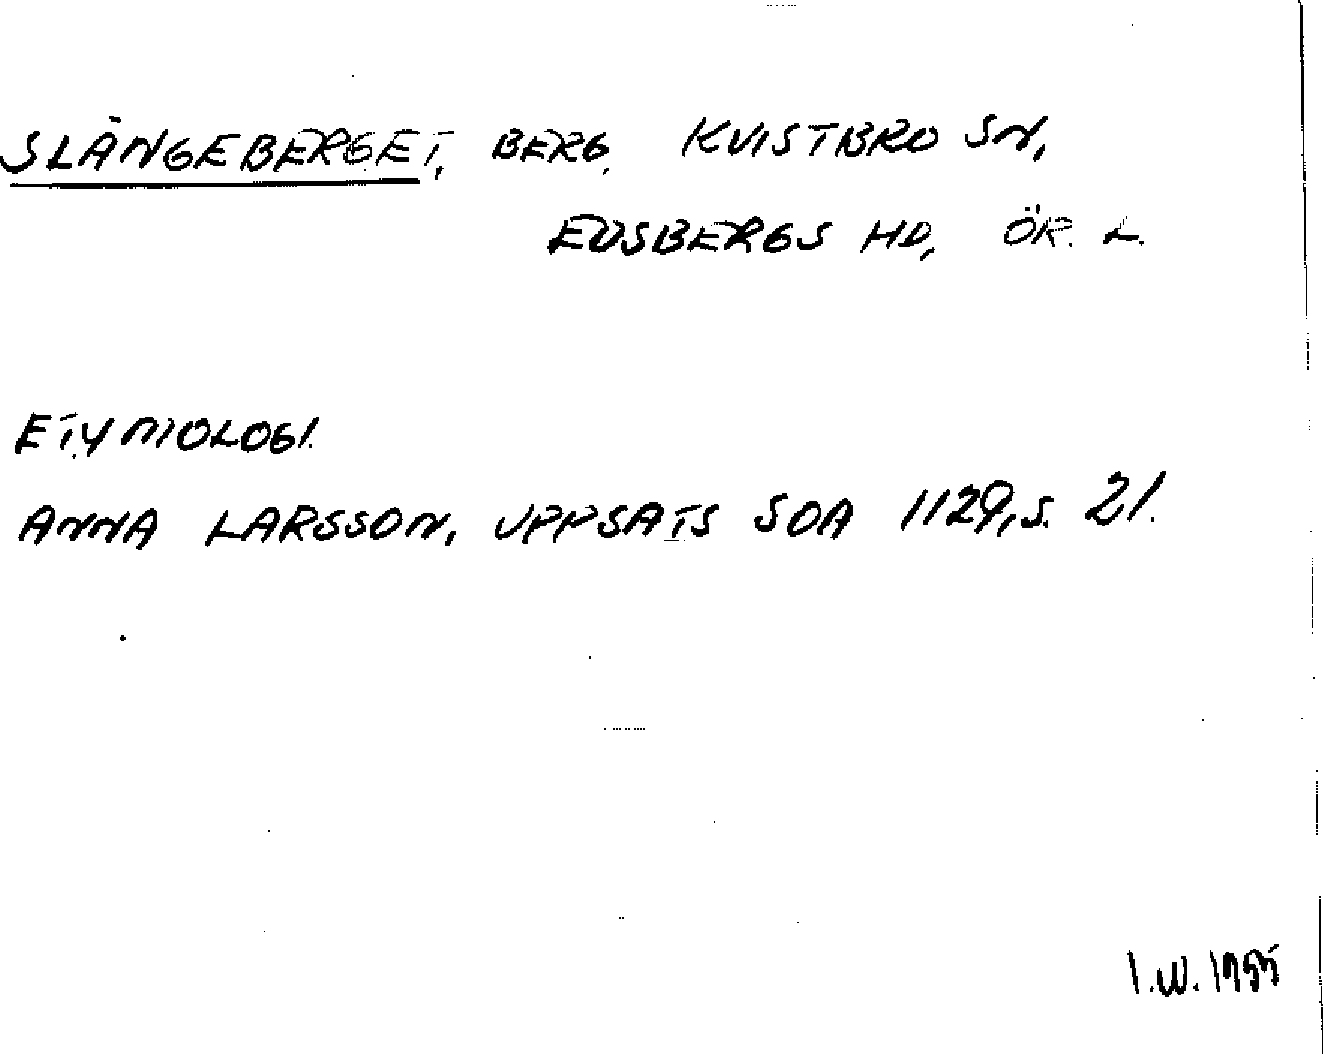 SLÄNGEBERGET, BERG, KVISTBRO SN,
EDSBERGS HD, ÖR. L.
ETYMOLOGI.
ANNA LARSSON, UPPSATS SOA 1129, S. 21.
I.W. 1985